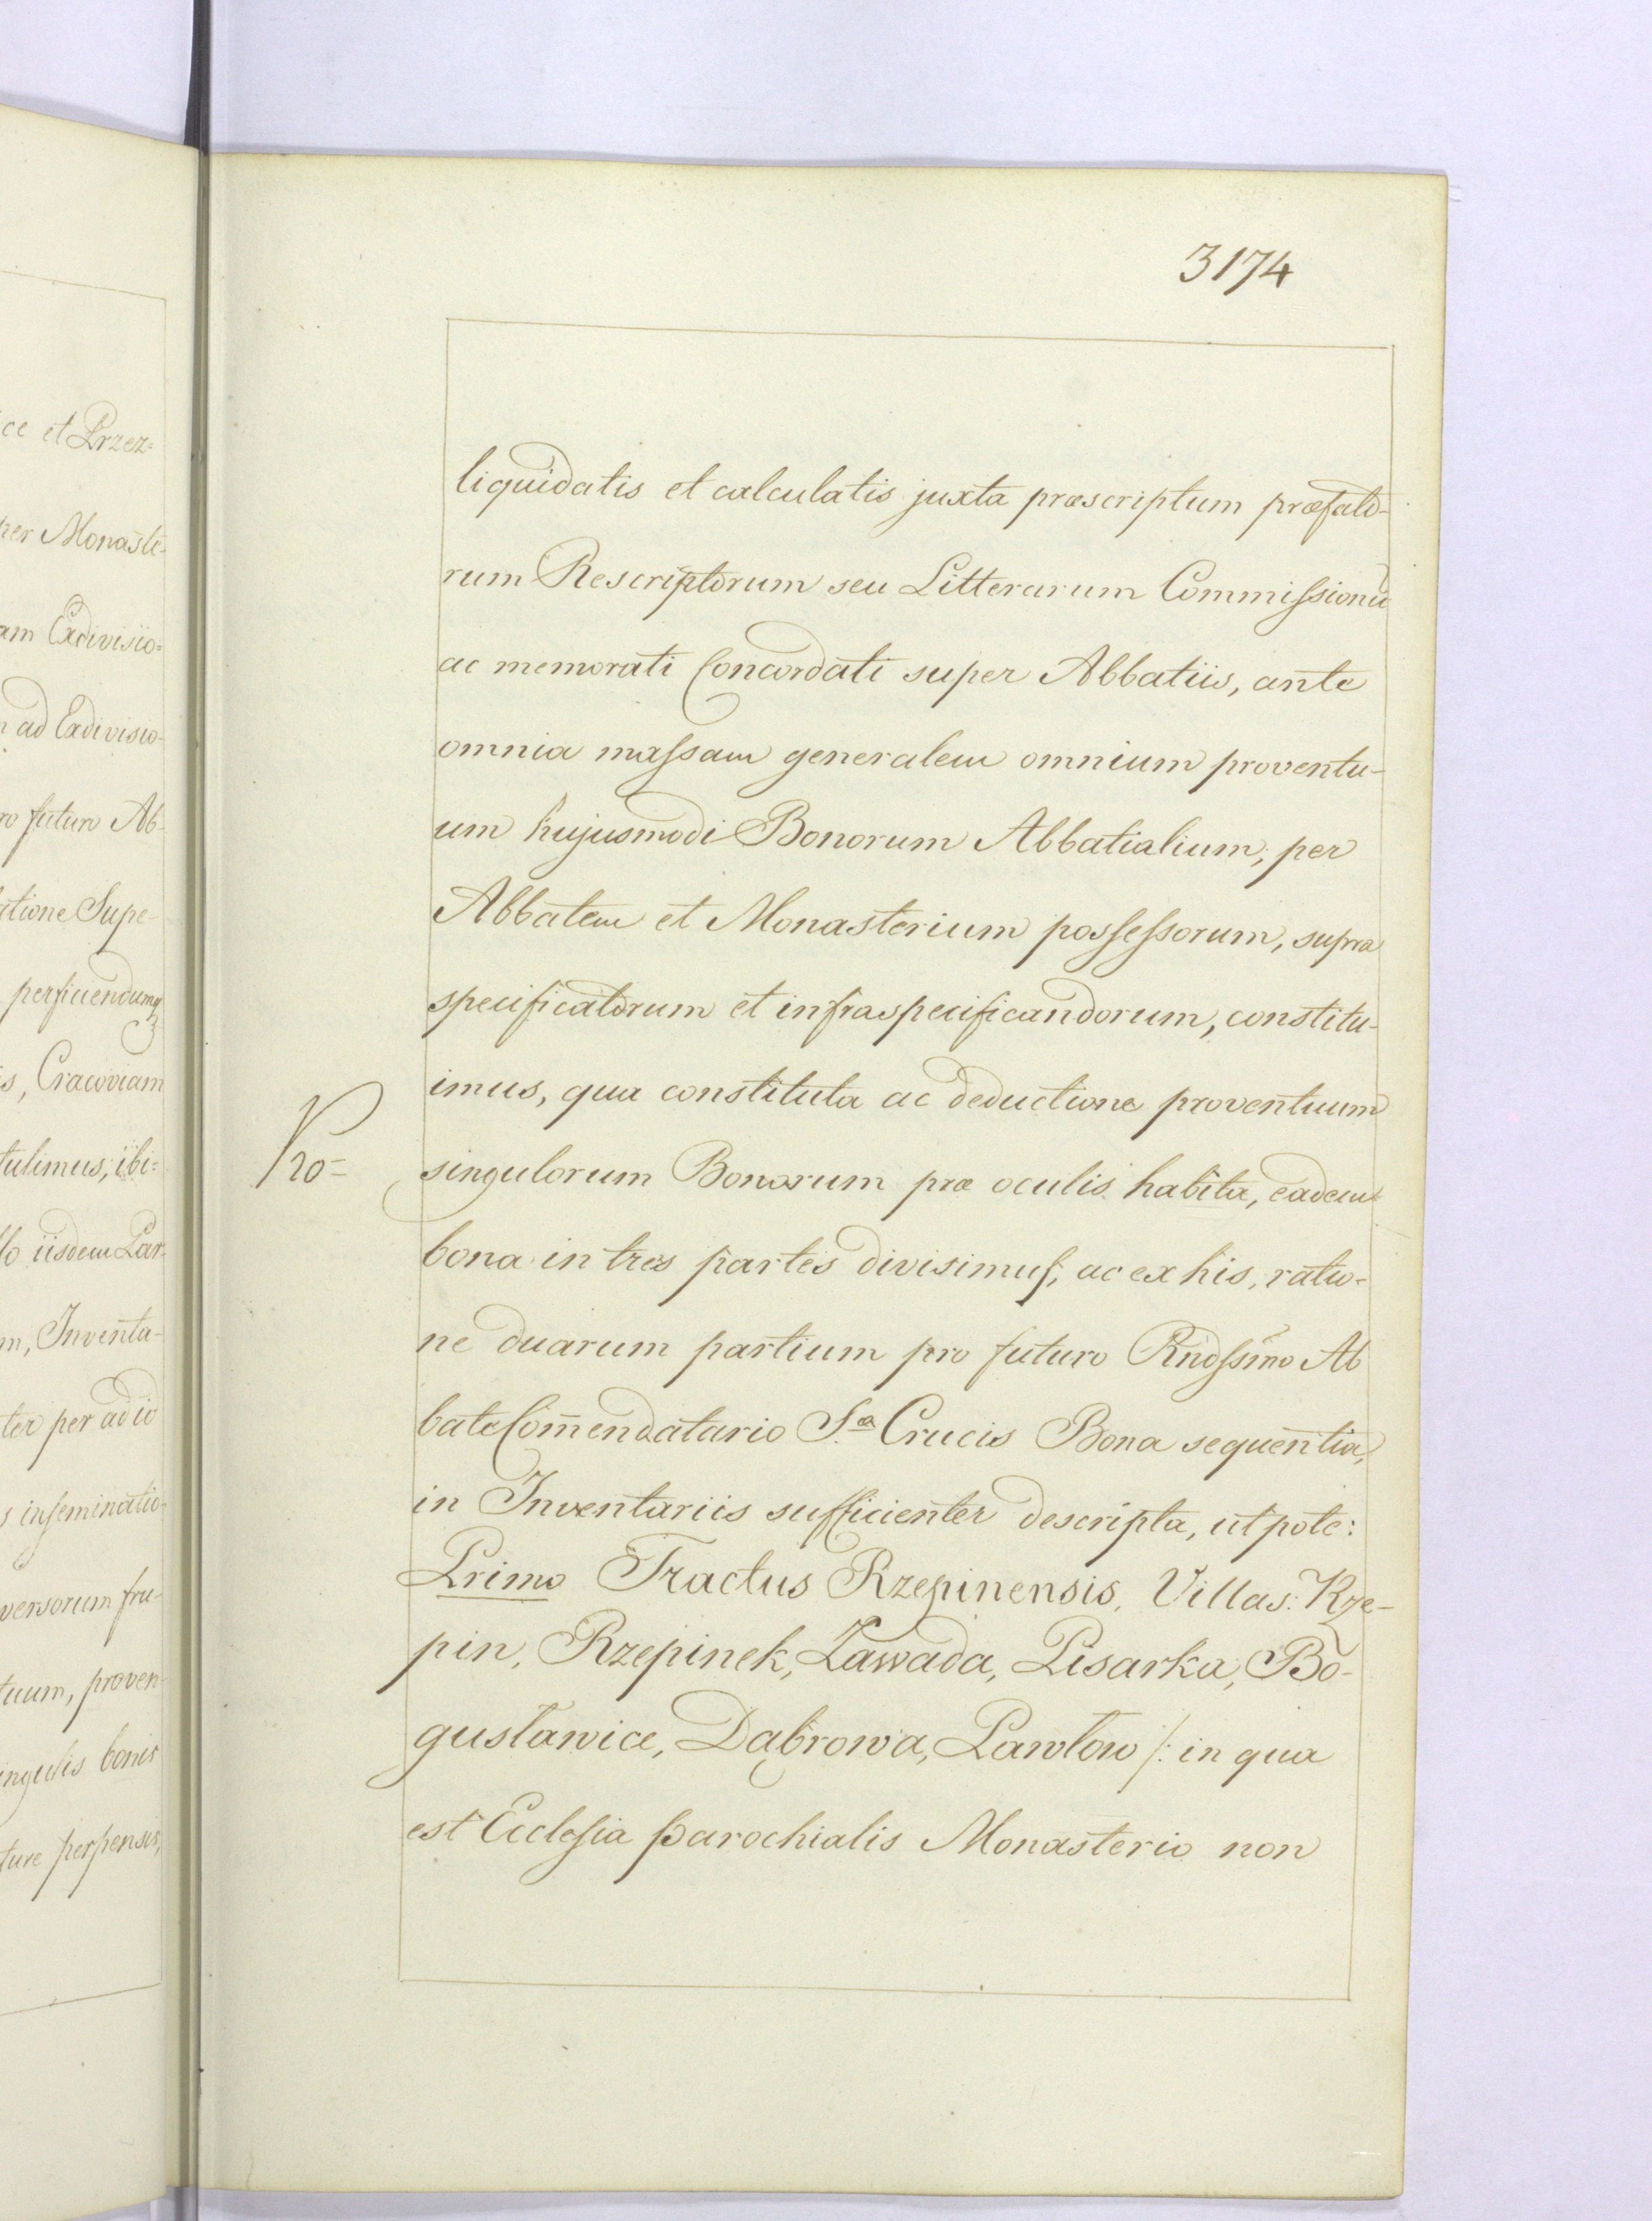 3174
liquidatis et calculatis juxta præscriptum præfato-
rum Rescriptorum seu Litterarum Commissionũ
ac memorati Concordati super Abbatiis, ante
omnia massam generalem omnium proventu-
um hujusmodi Bonorum Abbatialium, per
Abbatem et Monasterium possessorum, supra
specificatorum et infraspecificandorum, constitu-
imus, qua constituta ac deductione proventuum
singulorum Bonorum præ oculis habita, eadem
bona in tres partes divisimus, ac ex his, ratio-
ne duarum partium pro futuro Rndssimo Ab
bate Com̃endatario S.æ Crucis Bona sequentia,
in Inventariis sufficienter descripta, utpote:
Primo Tractus Rzepinensis, Villas: Rze-
pin, Rzepinek, Zawada, Pisarka, Bo-
gusławice, Dąbrowa, Pawłow /: in qua
est Ecclesia parochialis Monasterio non
ce et Przez=
per Monaste-
am Exdivisio=
ad Exdivisio-
ro futuro Ab-
atione Supe-
perficiendumq
s, Cracoviam
tulimus, ibi=
lo iisdem Par-
m, Inventa-
ter per ad io
s inseminatio-
versorum fru-
tuum, proven-
ingulis bonis
ture perpensis,